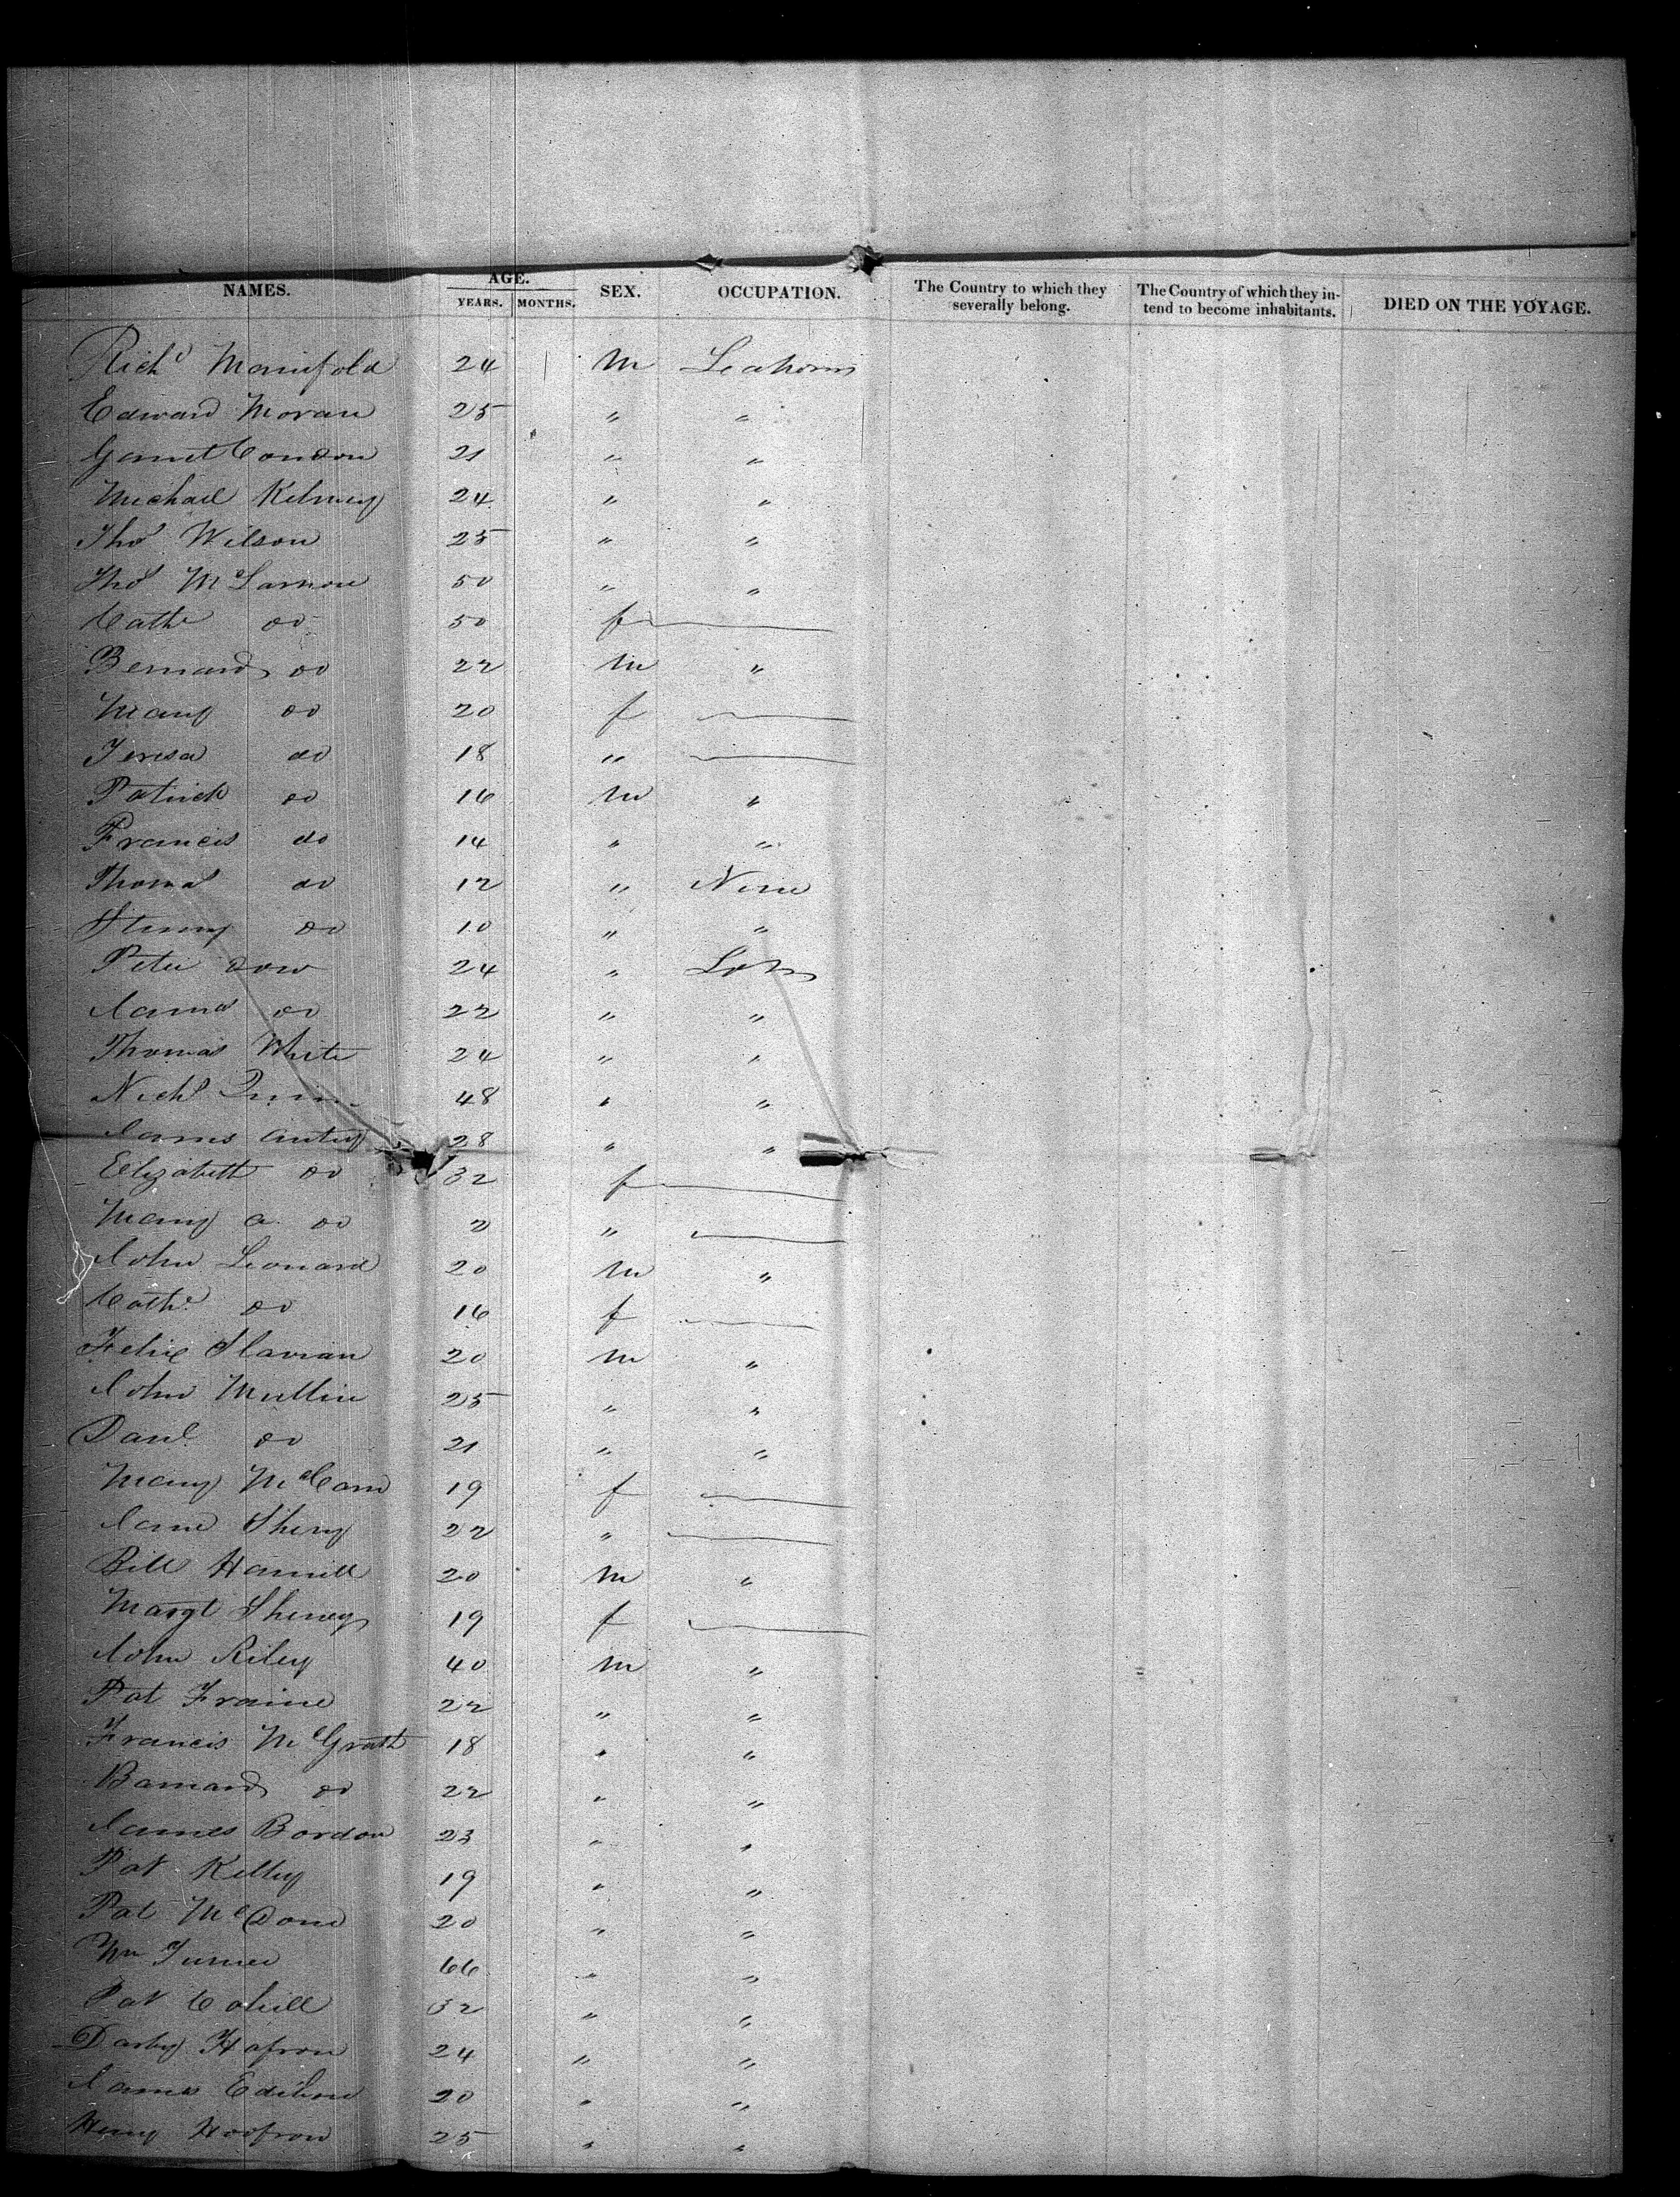 NAMES. AGE. YEARS. MONTHS. SEX. OCCUPATION. The Country to which they severally belong. The Country of which they intend to become inhabitants. DIED ON THE VOYAGE.
Richd Manifold 24 m
Edward Moran 25 " "
Garret Condon 21 " "
Michael 24 " "
Thos Wilson 25 " "
Thos McLarnon 50 " "
Cathe do 50 f
Bernard do 22 m "
Mary do 20 f
Teresa do 18 "
Patrick do 16 m "
Francis do 14 " "
Thomas do 12 " None
Henry do 10 " "
Peter 24 "
James do 22 " "
Thomas White 24 " "
Nichl Quinn 48 " "
James 28 " "
Elizabeth do 32 f
Mary a. do 2 "
John Leonard 20 m "
Cathe do 16 f
Felix Slavian 20 m "
John Mullin 25 " "
Danl do 21 " "
Mary McCann 19 f
Jane 22 "
Bill Hamill 20 m "
Margt 19 f
John Riley 40 m "
Pat 22 " "
Francis McGrath 18 " "
Barnard do 22 " "
James Bordon 23 " "
Pat Kelly 19 " "
Pat 20 " "
Wm Turner 66 " "
Pat Cahill 32 " "
Darby 24 " "
James 20 " "
Henry 25 " "